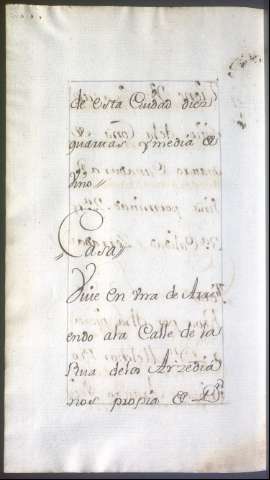 de esta Ciudad diez
quartas y media de
vino//
Casa//
Vive en vna de Arri
endo ala Calle de la
Rua delos Arzedia
nos propia de Dn.